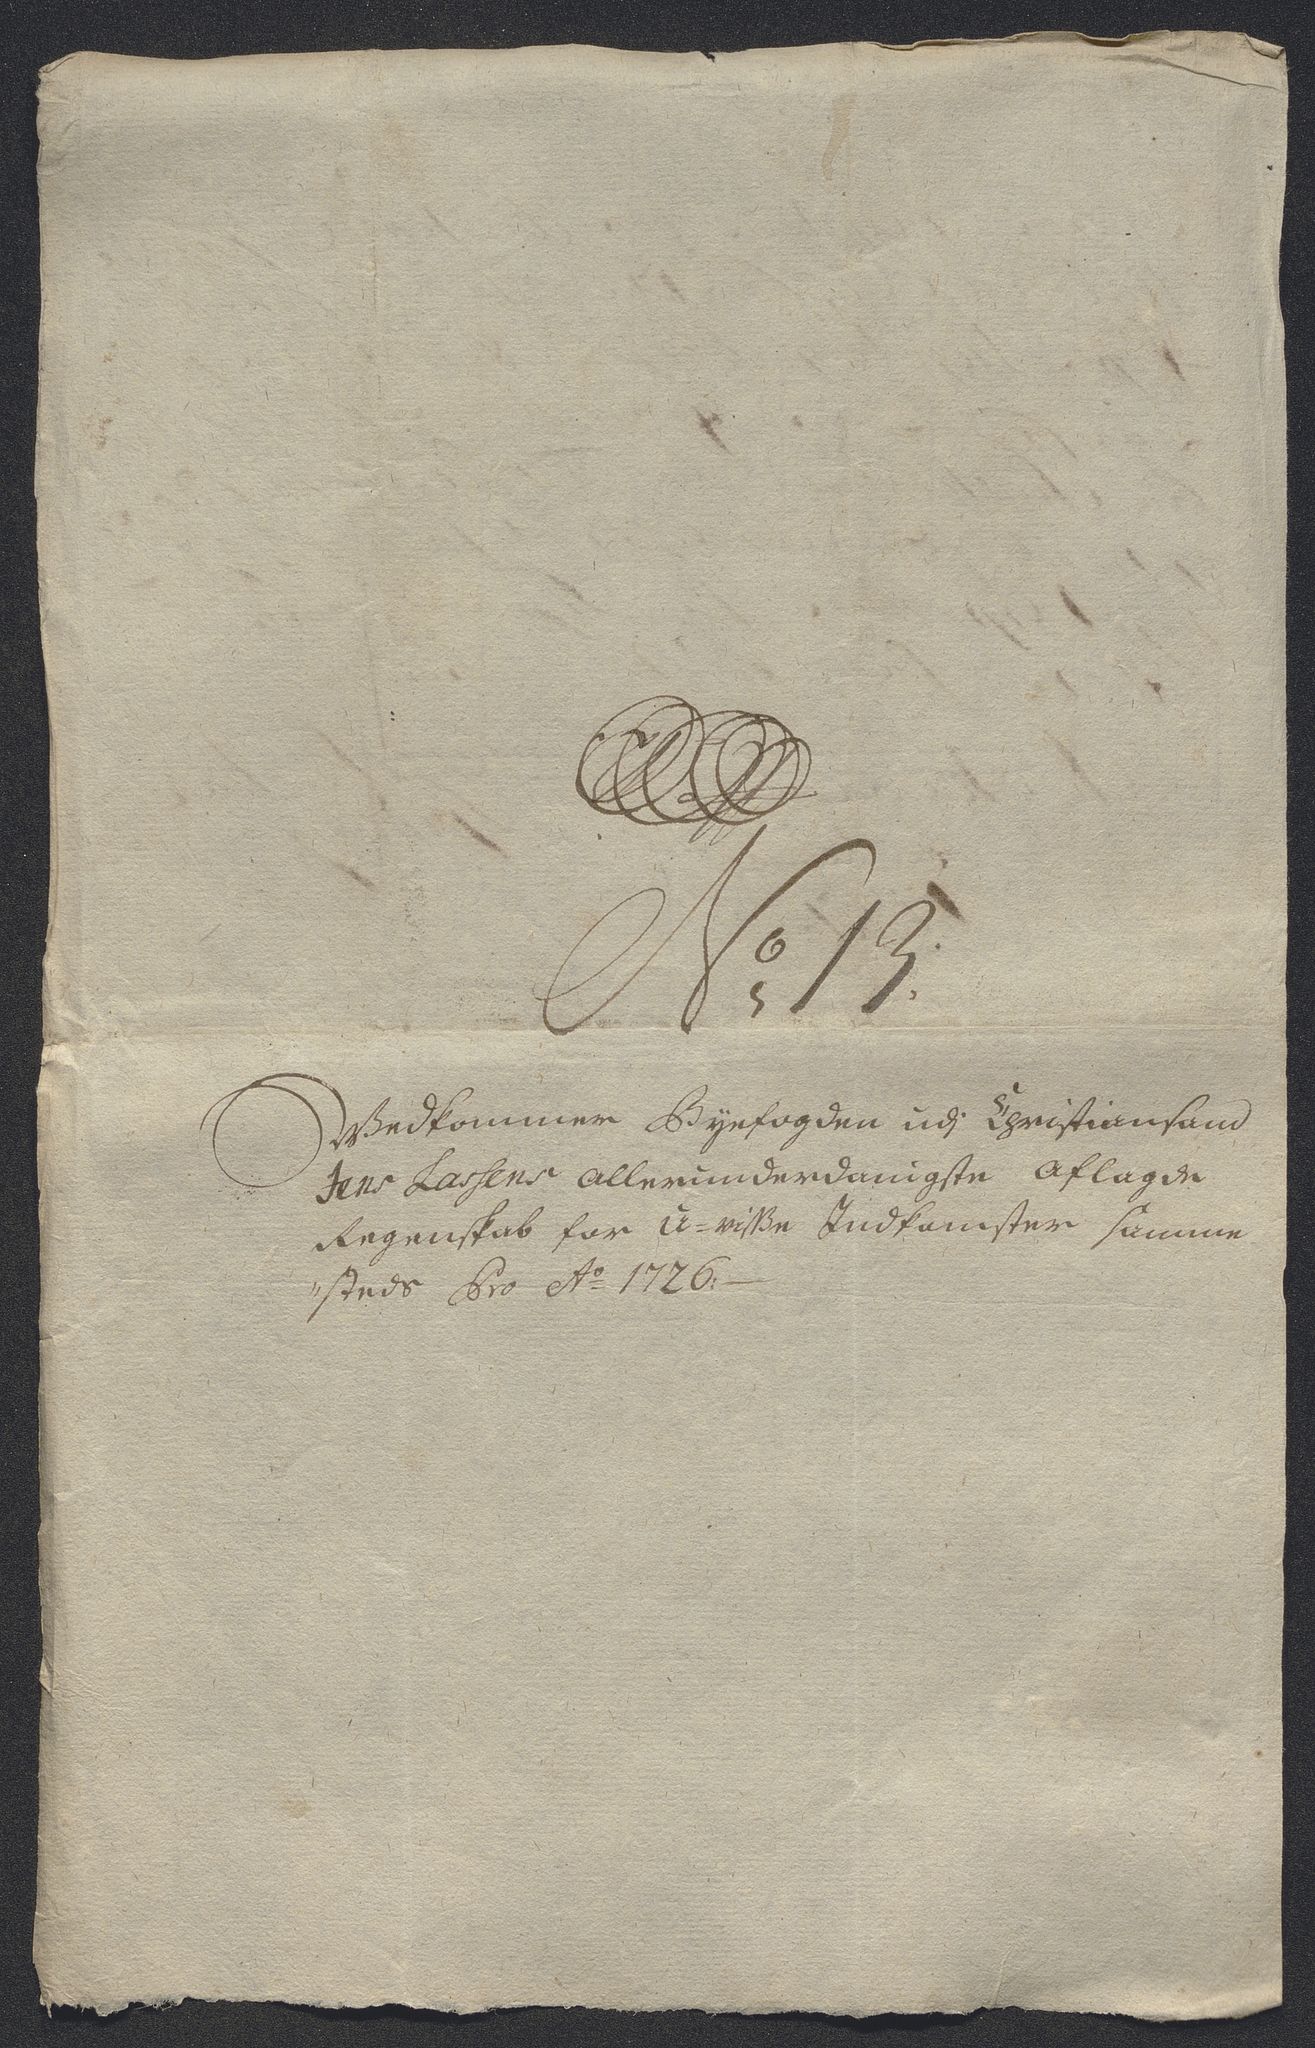 No 13.
Vedkommer Byefogden udj Christiansand
Jens Lassens allerunderdanigste aflagde
Regenskab for U=visse Indkomster samme
"steds Pro Ao 1726.